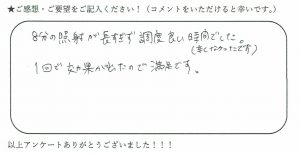 ★ご感想・ご要望をご記入ください！（コメントをいただけると幸いです。）
8分の照射が長すぎず調度良い時間でした。
(苦しくなかったです)
1回で効果が出たので満足です。
以上アンケートありがとうございました！！！